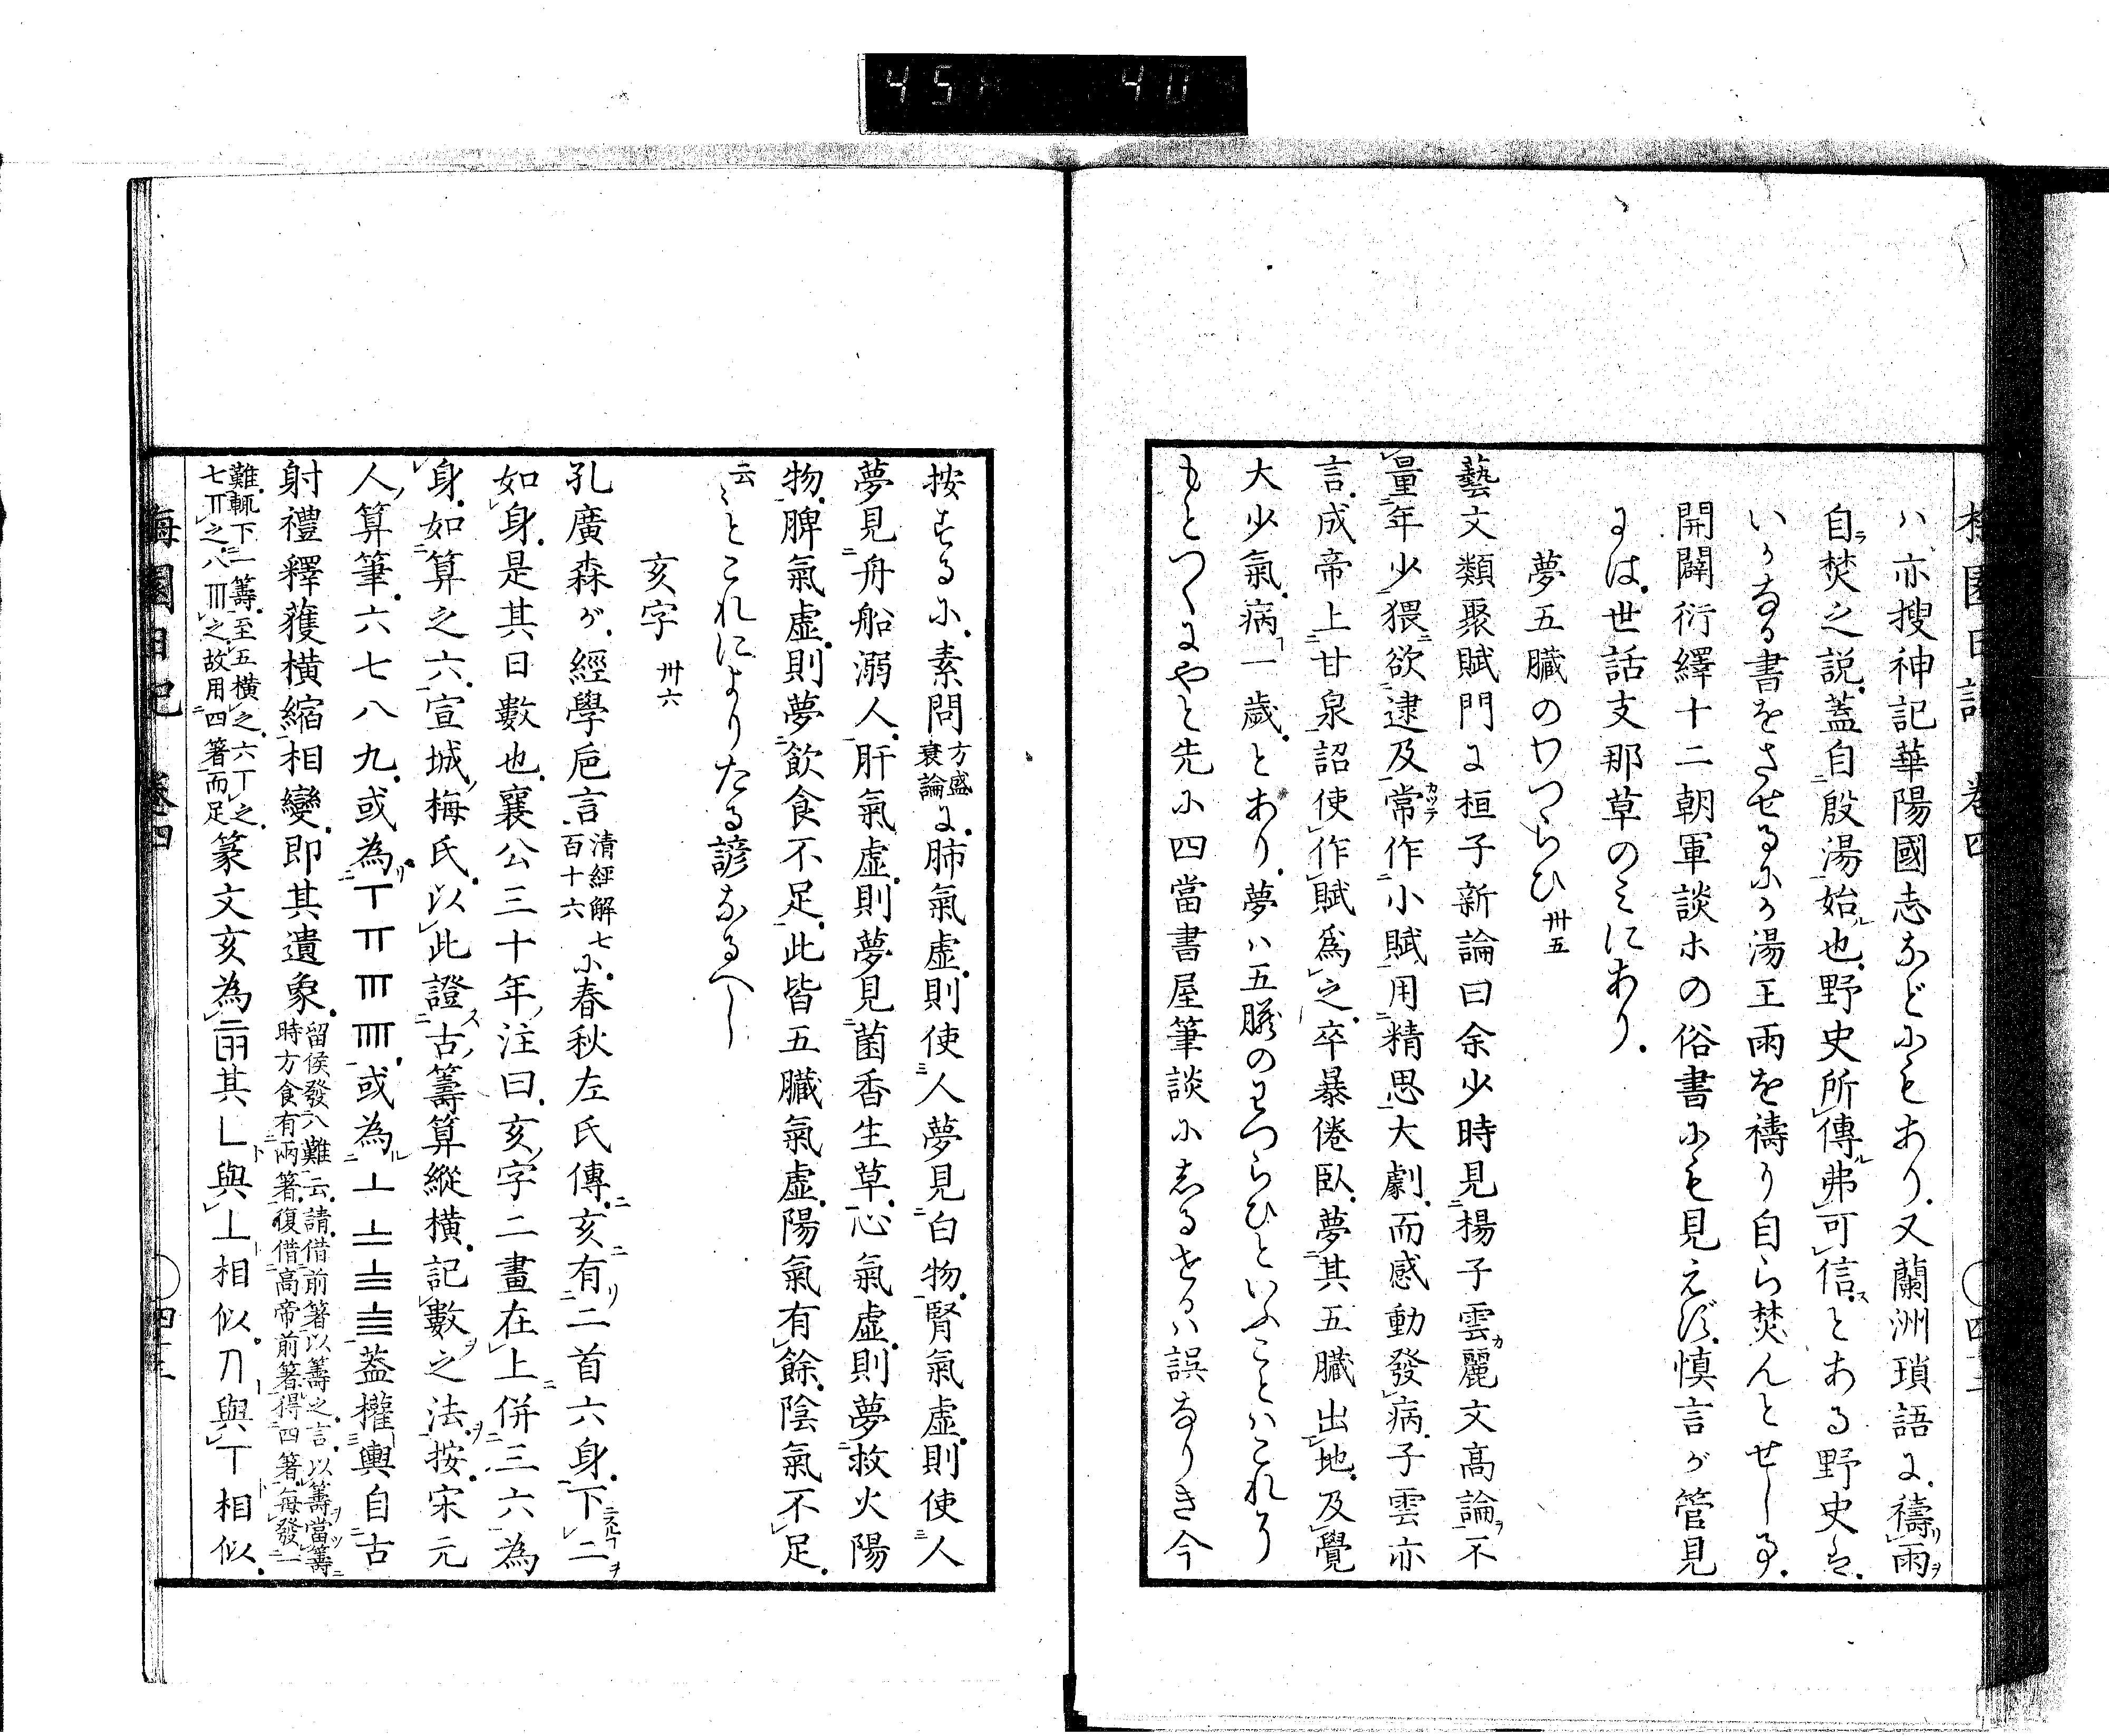 451 40
梅園日記 卷四 四十二
ハ亦搜神記華陽國志などにもあり又蘭洲瑣語に禱雨
自焚之說蓋自殷湯始也野史所傳弗可信とある野史は
いかなる書をさせるにか湯王雨を禱り自ら焚んとせし事
開闢衍繹十二朝軍談ホの俗書にも見えず慎言が管見
には世話支那草のみにあり
夢五臟のわづらひ 卅五
藝文類聚賦門に桓子新論曰余少時見揚子雲麗文高論不
量年少猥欲逮及常作小賦用精思大劇而感動發病子雲亦
言成帝上甘泉詔使作賦爲之卒暴倦臥夢其五臟出地及覺
大少氣病一歲とあり夢ハ五臟のわつらひといふことハこれより
もとつくにやと先に四當書屋筆談にしるせるハ誤なりき今
按ずるに素問方盛衰論に肺氣虛則使人夢見白物腎氣虛則使人
夢見舟船溺人肝氣虛則夢見菌香生草心氣虛則夢救火陽
物脾氣虛則夢飲食不足此皆五臟氣虛陽氣有餘陰氣不足
云々とこれによりたる諺なるへし
亥字 卅六
孔廣森が經學巵言清經解七百十六に春秋左氏傳亥有二首六身下二
如身是其日數也襄公三十年注曰亥字二畫在上併三六為
身如算之六宣城梅氏以此證古籌算縱橫記數之法按宋元
人算筆六七八九或為丅𝍧𝍨𝍩或為丄𝍰𝍱𝍲蓋權輿自古
射禮釋獲橫縮相變即其遺象留侯發八難云請借前箸以籌之言以籌當籌時方食有兩箸復借高帝前箸得四箸每發一
難輒下一籌至五橫之六丅之七𝍧之八𝍨之故用四箸而足篆文亥為其乚與丄相似刀與丅相似
梅園日記 卷四 四十三